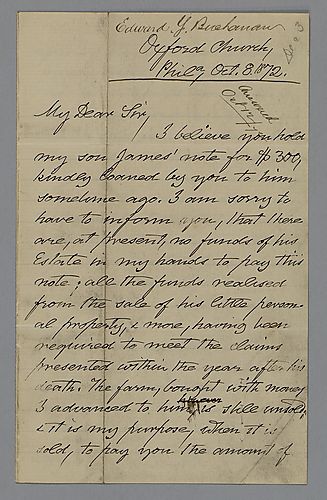 Edward Y. Buchanan
Oxford Church,
Phila Oct. 8. 1872.
Answered
Oct 12
My Dear Sir,
I believe you hold
my son James' note for $300,
kindly loaned by you to him
sometime ago. I am sorry to
have to inform you, that there
are, at present, no funds of his
Estate in my hands to pay this
note; all the funds realised
from the sale of his little person-
al property, & more, having been
required to meet the claims
presented within the year after his
death. The farm, bought with money
I advanced to him, is still unsold;
& it is my purpose, when it is
sold, to pay you the amount of